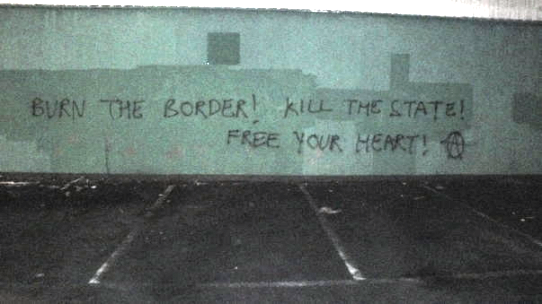 BURN THE BORDER! KILL THE STATE!
FREE YOUR HEART! Ⓐ